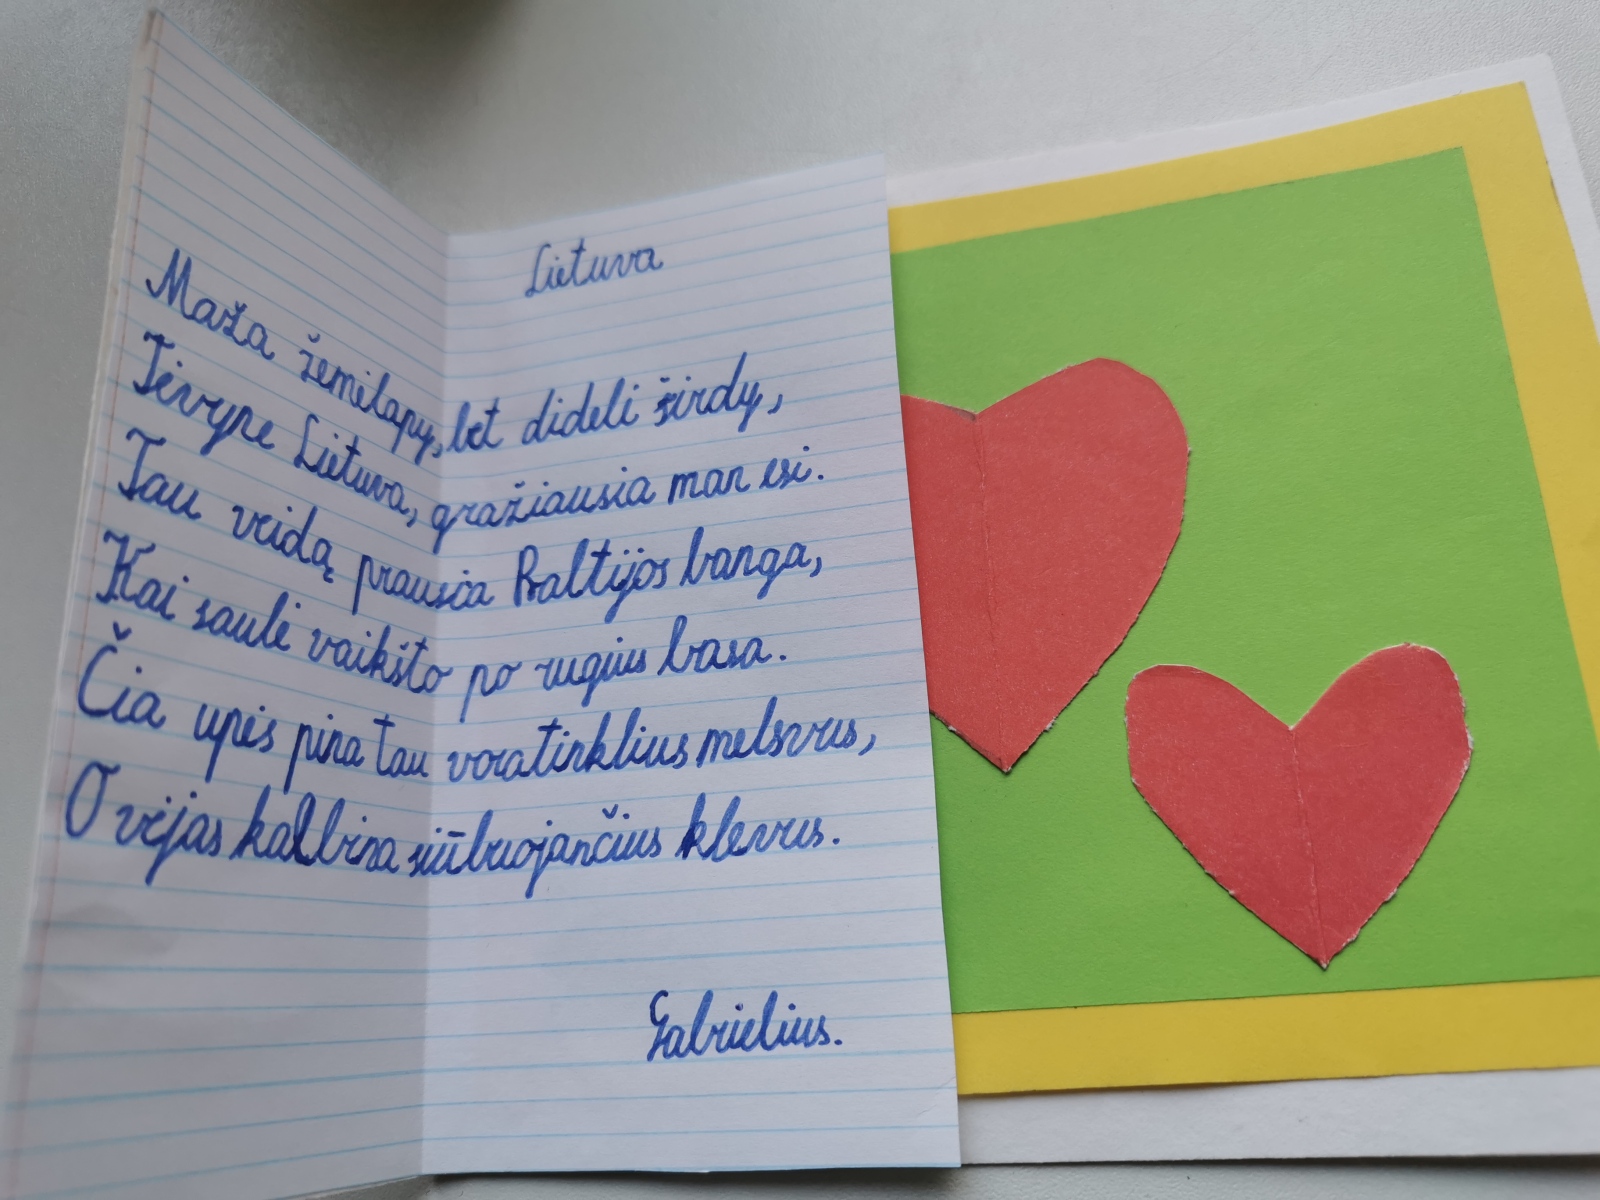 Lietuva
Maža žemėlapy, bet didelė širdy,
Tėvyne Lietuva, gražiausia man esi.
Tau veidą prausia Baltijos banga,
Kai saulė vaikšto po rugius basa.
Čia upės pina tau voratinklius melsvus,
O vėjas kalbina siūbuojančius klevus.
Gabrielius.